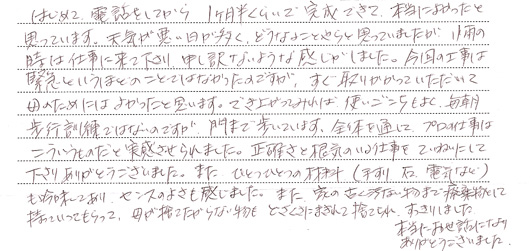 はじめて、電話をしてから 1ヶ月半くらいで完成できて、本当によかったと
思っています。天気が悪い日が多く、どうなることやらと思っていましたが、小雨の
時は仕事に来て下さり、申し訳ないような感じがしました。今回の工事は
緊急というほどのことではなかったのですが、すぐ取りかかっていただいて
母のためにはよかったと思います。でき上がってみれば、使いごこちもよく、毎朝
歩行訓練ではないのですが、門まで歩いています。全体を通して、プロの仕事は
こういうものだと実感させられました。正確さと根気のいる仕事をていねいにして
下さりありがとうございました。また、ひとつひとつの材料(手すり、石、電気など)
も吟味してあり、センスのよさも感じました。また、家の古く汚ない物まで廃棄物として
持っていってもらって、母が捨てたがらない物も どさくさにまぎれて捨てられ、すっきりしました
本当にお世話になり
ありがとうございました。